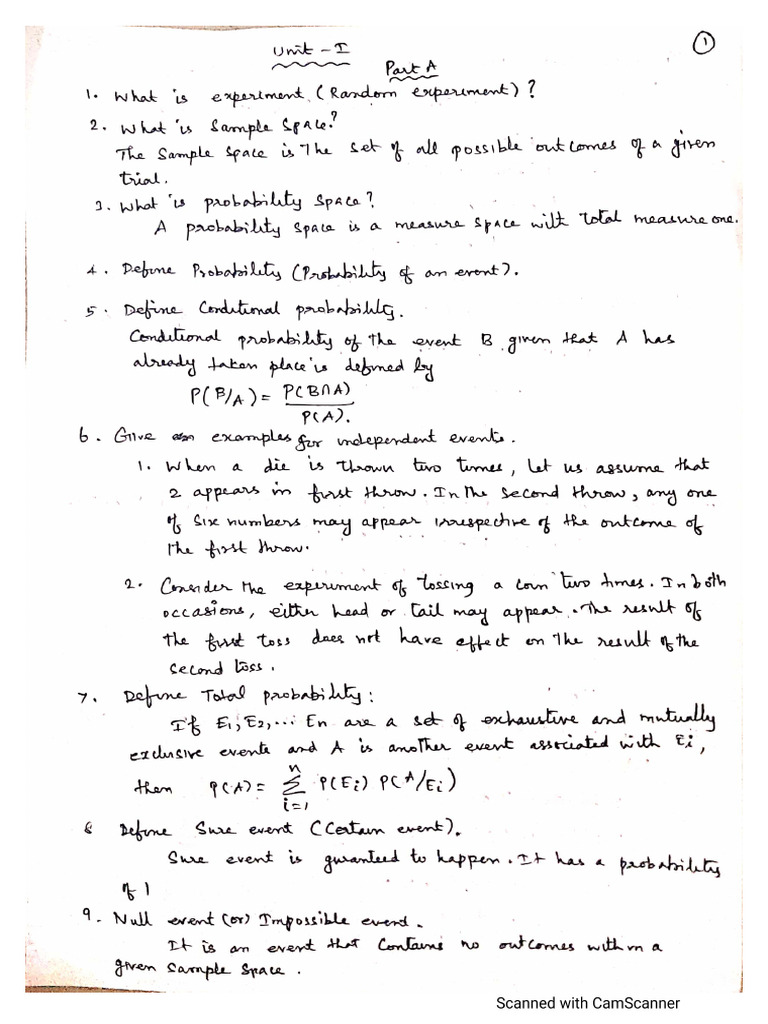 1
Unit - I
Part A
1. What is experiment (Random experiment)?
2. What is Sample Space?
The Sample Space is The set of all possible outcomes of a given
trial.
3. What is probability Space?
A probability Space is a measure space with Total measure one.
4. Define Probability (Probability of an event).
5. Define Conditional probability.
Conditional probability of the event B given that A has
already taken place is defined by
P(B/A) = P(B∩A)
P(A).
6. Give examples for independent events.
1. When a die is thrown two times, let us assume that
2 appears in first throw. In the second throw, any one
of six numbers may appear irrespective of the outcome of
the first throw.
2. Consider the experiment of tossing a coin two times. In both
occasions, either head or tail may appear. The result of
the first toss does not have effect on the result of the
second toss.
7. Define Total probability:
If E1, E2, ... En are a set of exhaustive and mutually
exclusive events and A is another event associated with Ei,
then P(A) = n∑i=1 P(Ei) P(A/Ei)
8 Define Sure event (Certain event).
Sure event is guranteed to happen. It has a probability
of 1
9. Null event (or) Impossible event.
It is an event that Contains no outcomes within a
given Sample Space.
Scanned with CamScanner